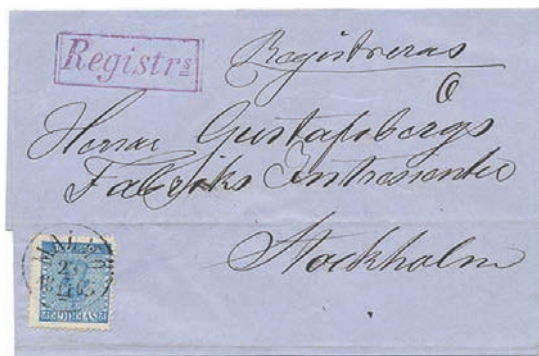 Registrs
Registreras
Herrar Gustafsbergs
Fabriks Intressenter
Stockholm